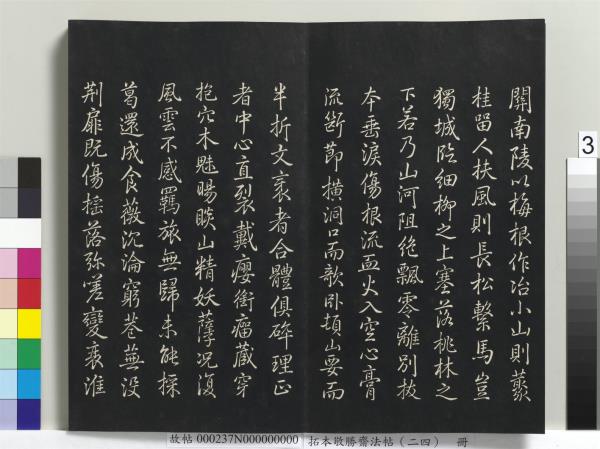 關南陵以梅根作冶小山則藂
桂留人扶風則長松繫馬豈
獨城臨細柳之上塞落桃林之
下若乃山河阻絶飄零離別拔
本垂淚傷根流血火入空心膏
流斷節橫洞口而欹卧頓山要而
半折文衺者合體俱碎理正
者中心直裂戴癭銜瘤藏穿
抱穴木魅睗睒山精妖孽況復
風雲不感羈旅無歸未能採
葛還成食薇沉淪窮巷蕪没
荆扉既傷搖落弥嗟變衰淮
3
故帖 000237N000000000 拓本敬勝齋法帖(二四) 冊